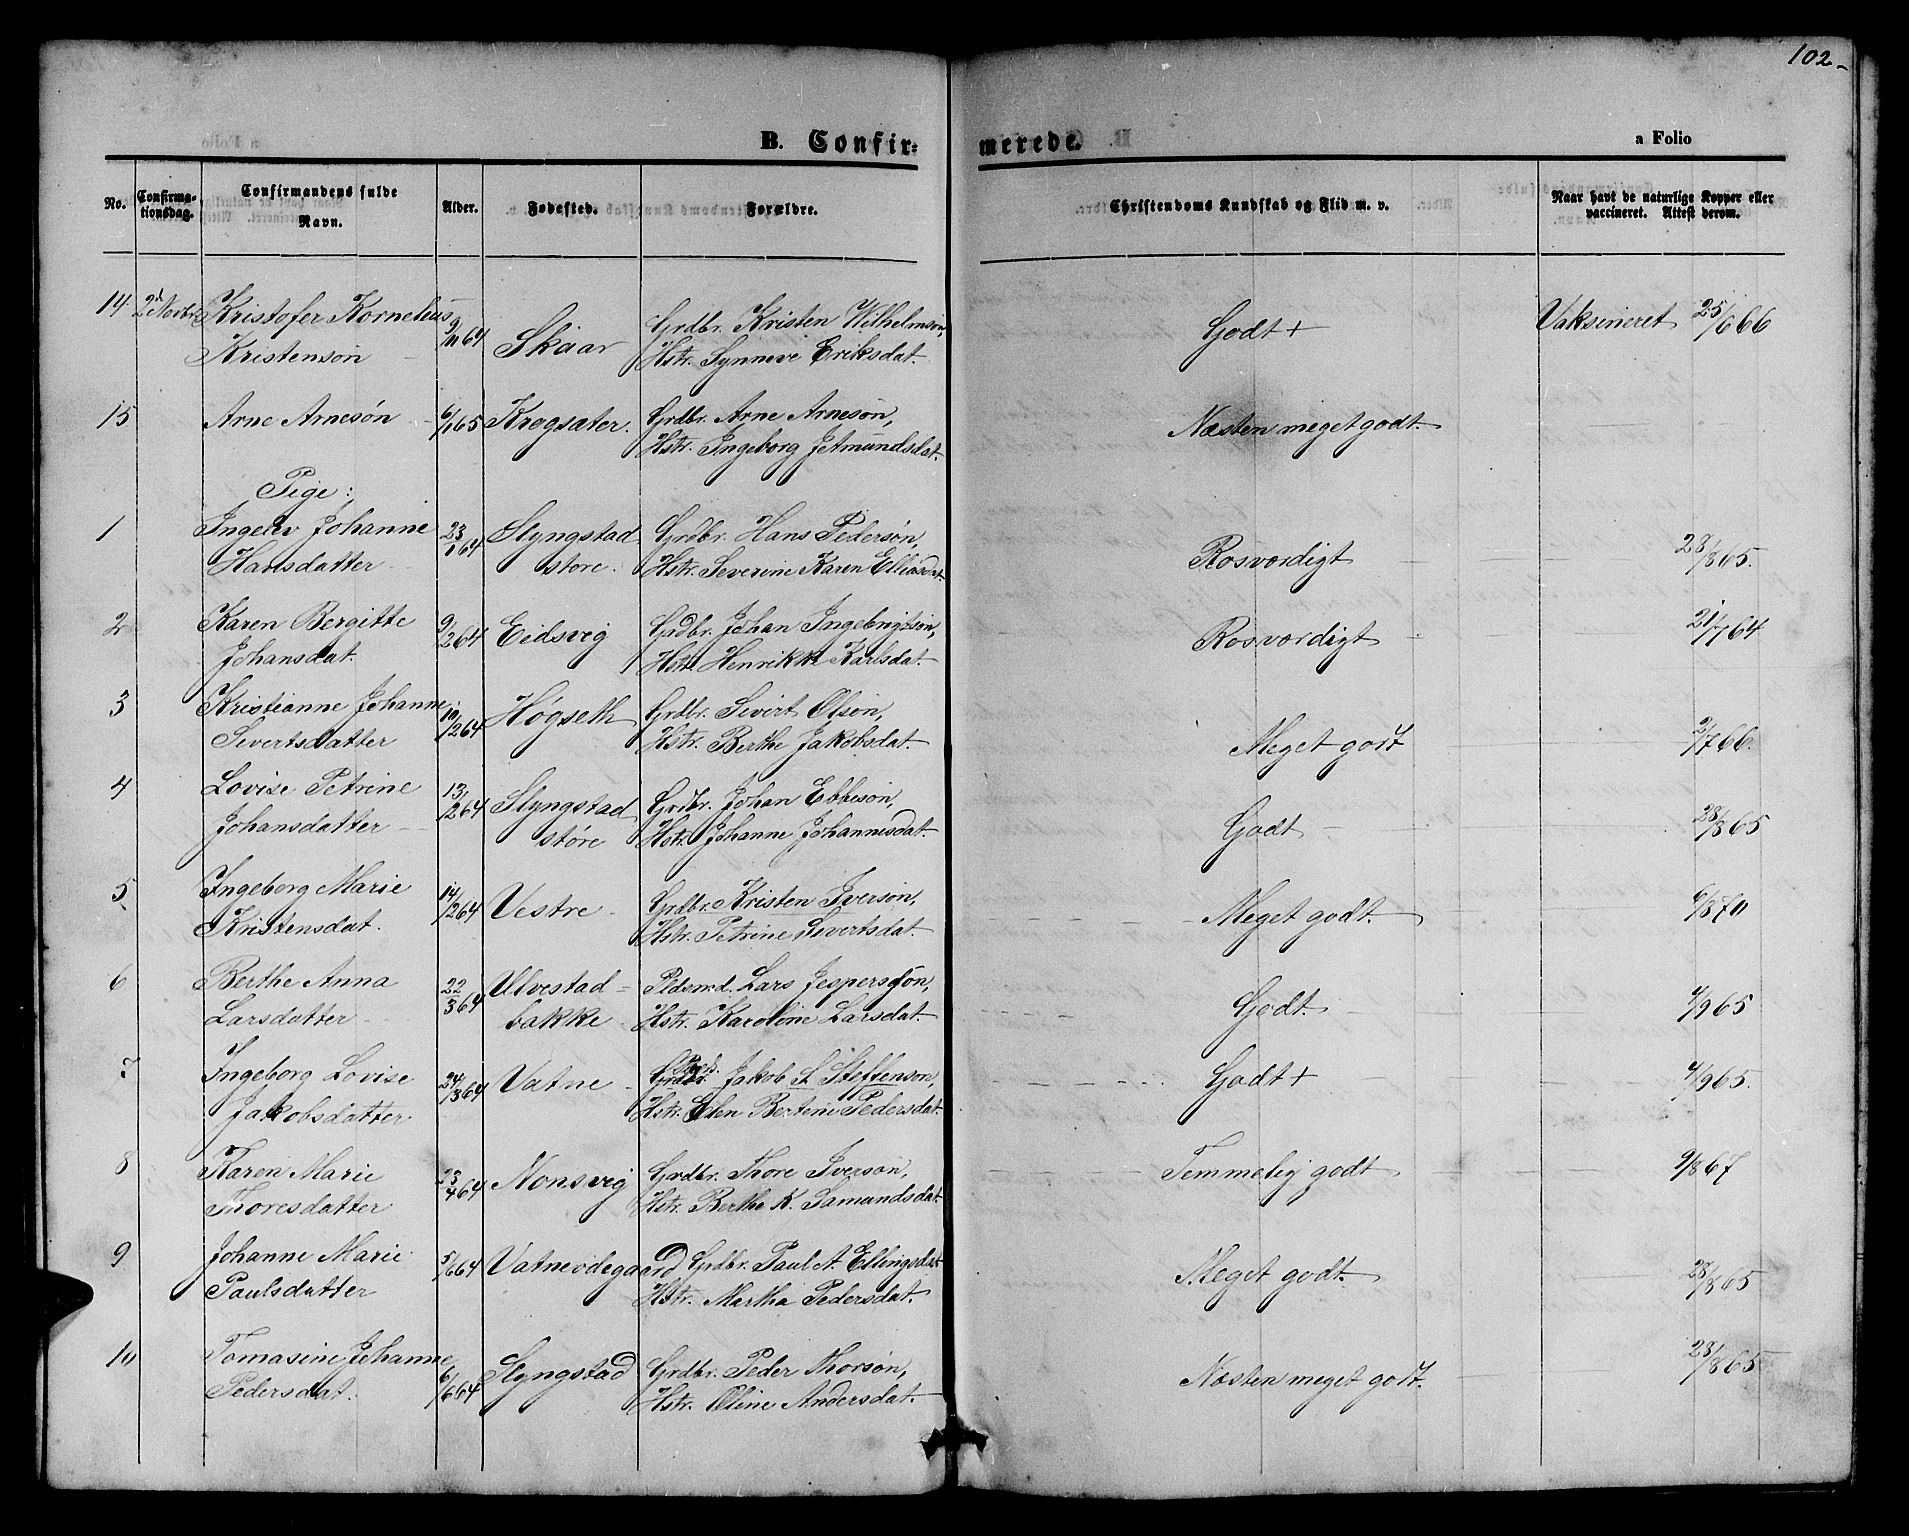 102
B. Confirmerede.
a Folio
No. Confirmationsdag. Confirmandens fulde Navn. Alder. Fødested. Forældre. Christendoms Kundskab og Flid m. v. Naar havt de naturlige Kopper eller vaccineret. Attest derom.
14 2d Novbr Kristofer Kornelius 9/11 64 Skaar Grdbr. Kristen Wilhelmsøn, Godt + Vaksineret 25/6 66
Kristensøn Hstr. Synneve Eriksdat.
15 Arne Arnesøn 6/1 65 Krogsæter. Grdbr. Arne Arnesøn, Næsten meget godt.
Hstr. Ingeborg Jetmundsdat.
Pige:
1 Johanne 23/1 64 Slyngstad Grdbr. Hans Pedersøn, Rosværdigt 28/8 65.
Hansdatter store. Hstr. Severine Karen Elliasdat.
2 Karen Bergitte 9/2 64 Eidsvig Grdbr. Johan Ingebrigtsøn, Rosværdigt 21/7 64
Johansdat. Hstr. Henrikke Karlsdat.
3 Kristianne Johanne 10/2 64 Høgseth Grdbr. Sivert Olsøn, Meget godt 2/7 66.
Sivertsdatter Hstr. Berthe Jakobsdat.
4 Lovise Petrine 13/2 64 Slyngstad Grdbr. Johan Ebbesøn, Godt 28/8 65
Johansdatter støre Hstr. Johanne Johannesdat.
5 Ingeborg Marie 14/2 64 Vestre Grdbr. Kristen Iversøn, Meget godt. 6/8 70
Kristensdat. Hstr. Petrine Sivertsdat.
6 Berthe Anna 22/3 64 Ulvestad- Pldsmd. Lars Jespersøn, Godt. 4/9 65
Larsdatter bakke Hstr. Karoline Larsdat.
7 Ingeborg Lovise 24/3 64 Vatne Grdbr. Jakob S. Steffensøn, Godt + 4/9 65.
Jakobsdatter Hstr. Elen Bertine Pedersdat.
8 Karen Marie 23/4 64 Nonsvig Grdbr. Thore Iversøn, Temmelig godt 9/8 67
Thoresdatter Hstr. Berthe K. Samundsdat.
9 Johanne Marie 5/6 64 Vatneødegaard Grdbr. Paul A. Ellingsdat Meget godt. 28/8 65
Paulsdatter Hstr. Martha Pedersdat.
10 Tomasine Johanne 6/6 64 Slyngstad Grdbr. Peder Thorsøn, Næsten meget godt. 28/8 65
Pedersdat. Hstr. Oline Andersdat.